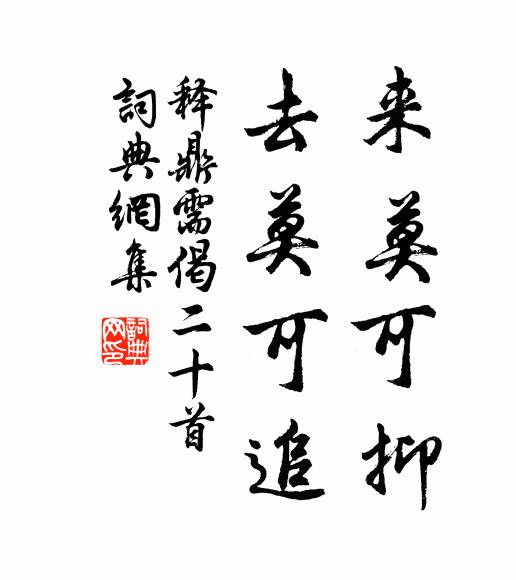 来莫可抑
去莫可追
释鼎需偈二十首
詞典網集
詞典网印